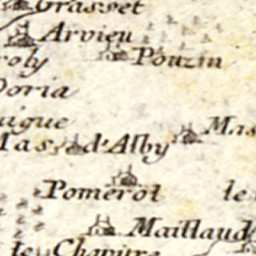 Grasset
Arvieu
Pouzin
roly
Doria
aigue
Mas
Mas d'Alby
Pomerol
le
Maillaud
le Chapitre